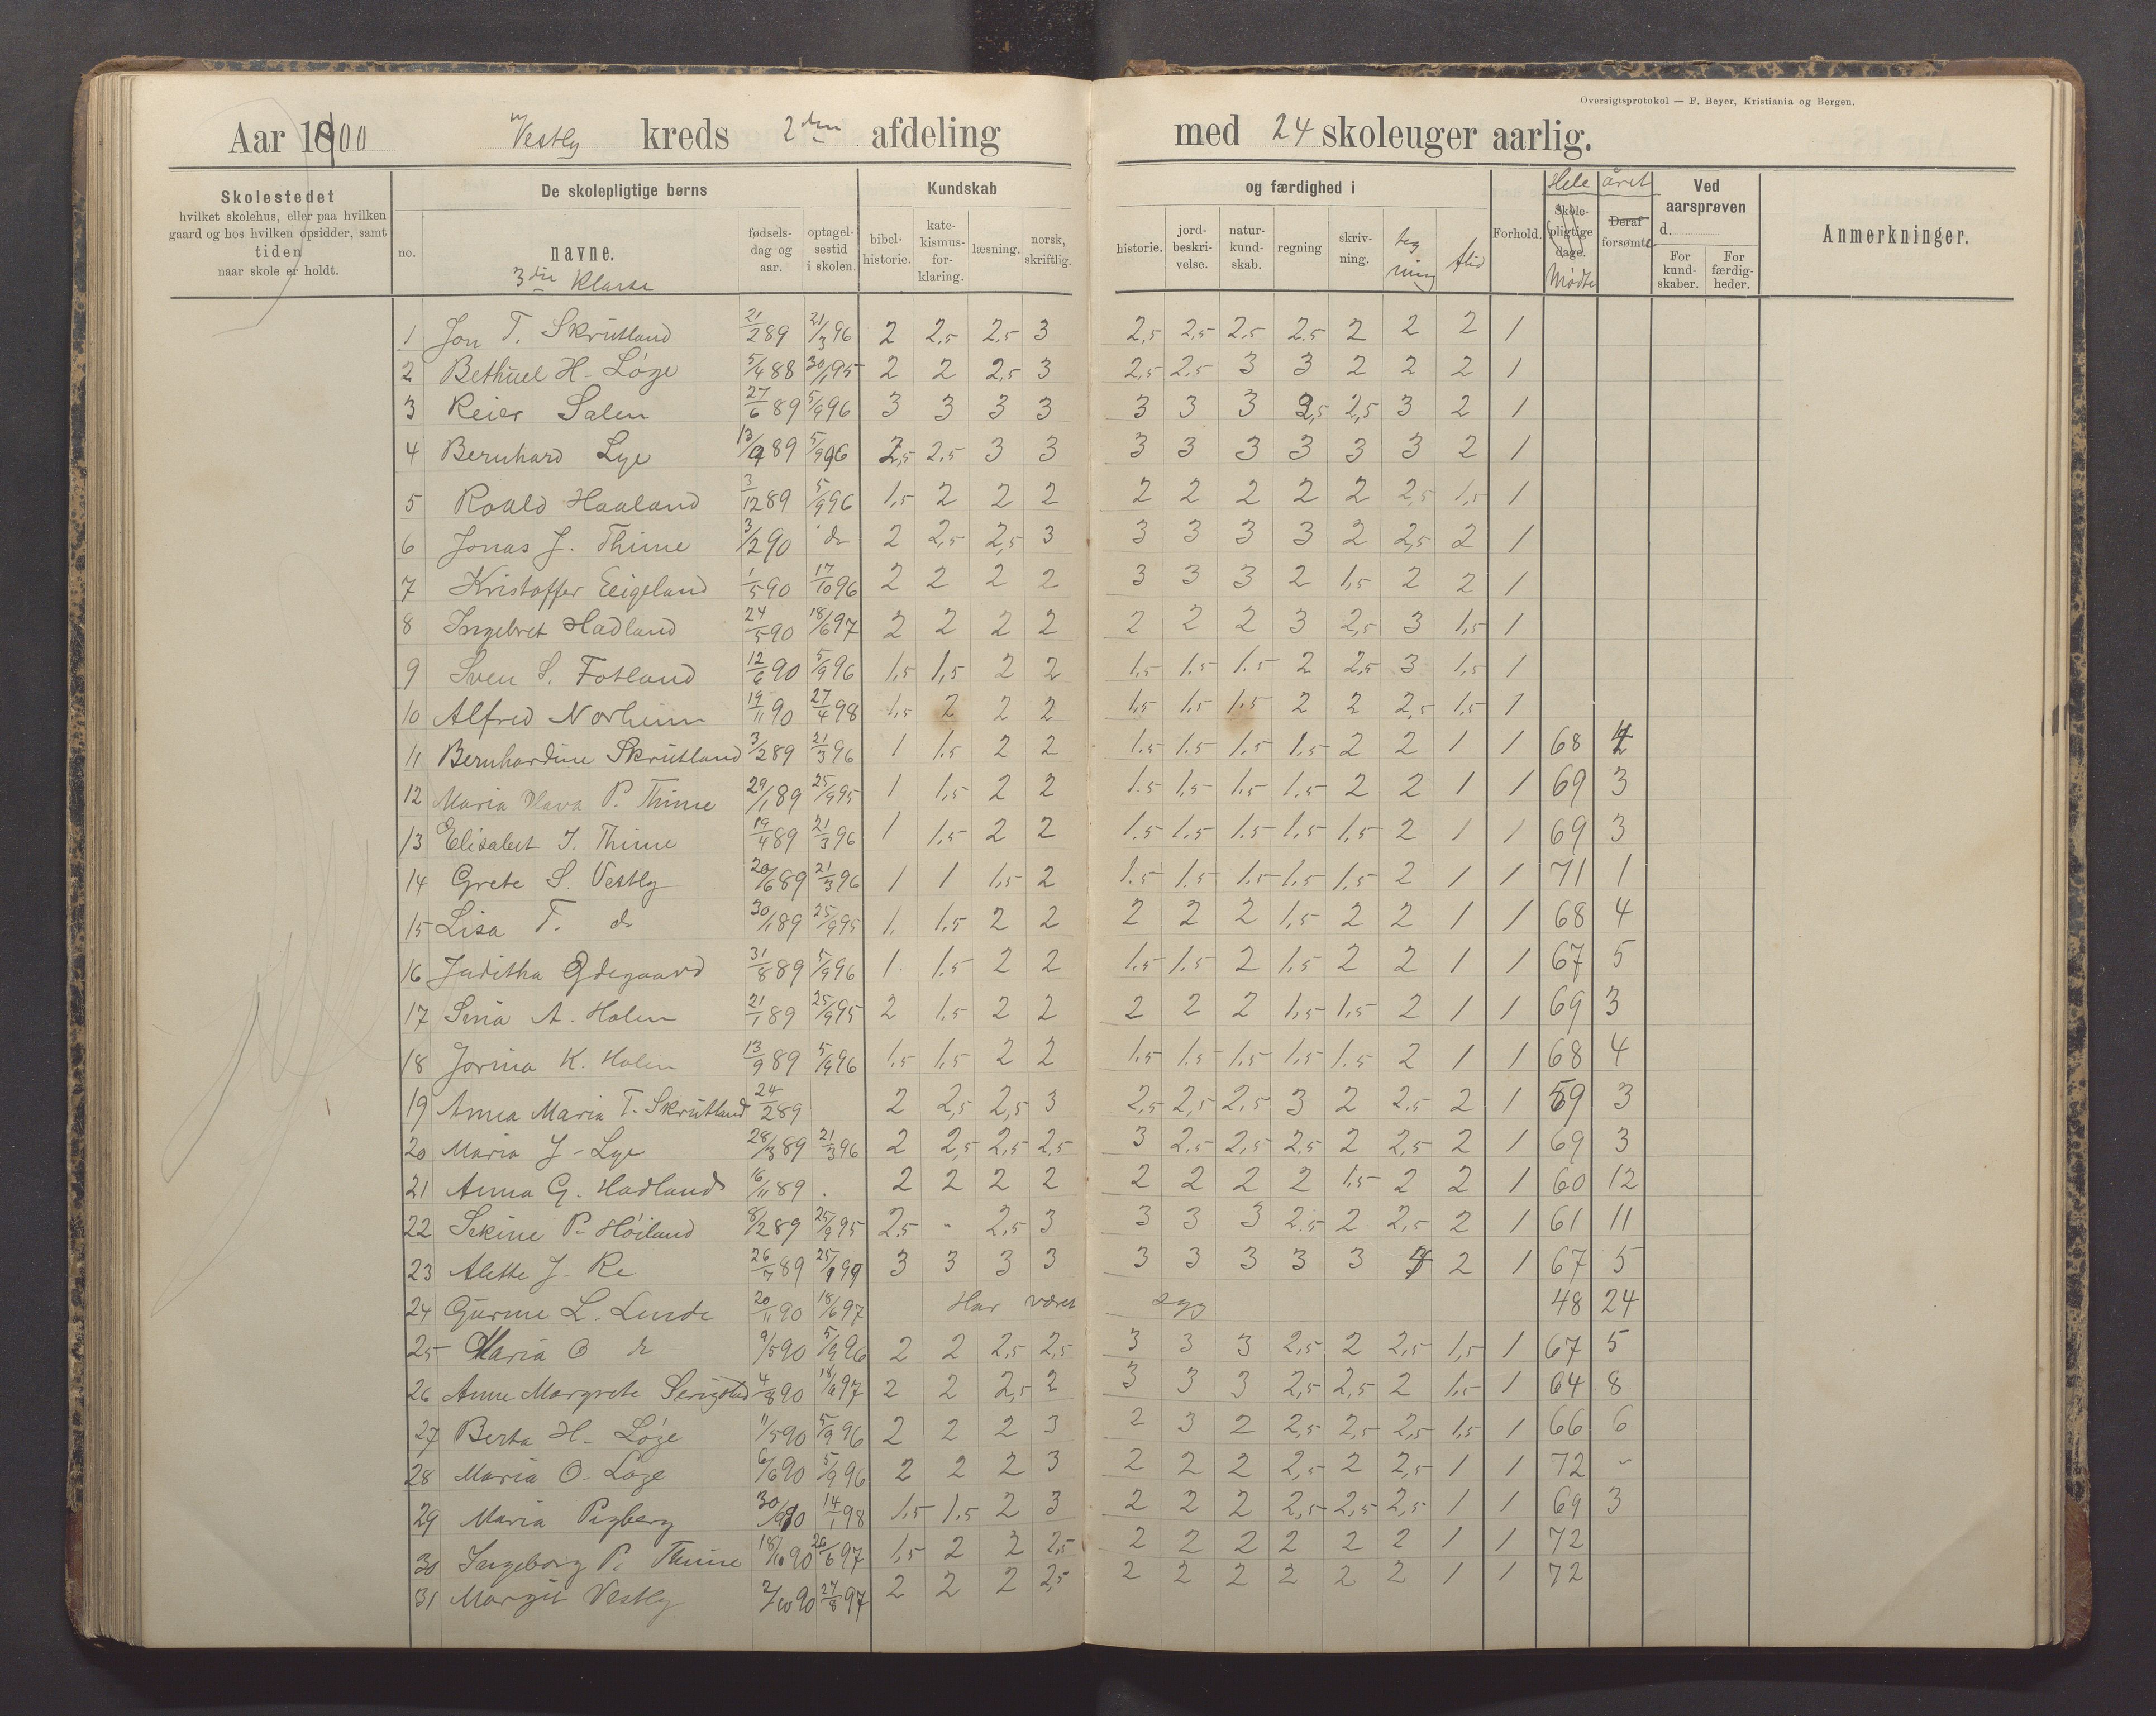 Oversigtsprotokol — F. Beyer, Kristiania og Bergen.
Aar 1900 Vestly kreds 2den afdeling med 24 skoleuger aarlig.
Skolestedet
hvilket skolehus, eller paa hvilken
gaard og hos hvilken opsidder, samt
tiden
naar skole er holdt.
De skolepligtige børns
no.
navne.
3die Klasse
fødsels-
dag og
aar.
optagel-
sestid
i skolen.
Kundskab og færdighed i
bibel-
historie.
kate-
kismus-
for-
klaring.
læsning.
norsk,
skriftlig.
historie.
jord-
beskri-
velse.
natur-
kund-
skab.
regning
skriv-
ning.
teg
ning
flid
Forhold.
Hele året
Skole-
pligtige
dage.
Mødte
Deraf
forsømte
Ved
aarsprøven
d.
For
kund-
skaber.
For
færdig-
heder.
Anmerkninger.
1 Jon T. Skrutland 21/2 89 21/3 96 2 2,5 2,5 3 2,5 2,5 2,5 2,5 2 2 2 1
2 Bethuel H. Löge 5/4 88 30/1 95 2 2 2,5 3 2,5 2,5 3 3 2 2 2 1
3 Reier Salen 27/6 89 5/9 96 3 3 3 3 3 3 3 2,5 2,5 3 2 1
4 Bernhard Lye 13/9 89 5/9 96 2,5 2,5 3 3 3 3 3 3 3 3 2 1
5 Roald Haaland 3/12 89 5/9 96 1,5 2 2 2 2 2 2 2 2 2,5 1,5 1
6 Jonas J. Thime 3/2 90 do 2 2,5 2,5 3 3 3 3 3 2 2,5 2 1
7 Kristoffer Eeigeland 1/5 90 17/10 96 2 2 2 2 3 3 3 2 1,5 2 2 1
8 Ingebret Hadland 24/5 90 18/6 97 2 2 2 2 2 2 2 3 2,5 3 1,5 1
9 Sven S. Fotland 12/6 90 5/9 96 1,5 1,5 2 2 1,5 1,5 1,5 2 2,5 3 1,5 1
10 Alfred Norheim 19/11 90 27/4 98 1,5 2 2 2 1,5 1,5 1,5 2 2 2,5 1,5 1
11 Bernhardine Skrutland 3/2 89 21/3 96 1 1,5 2 2 1.5 1.5 1,5 1,5 2 2 1 1 68 4
12 Maria Hava P. Thime 29/1 89 25/9 95 1 1,5 2 2 1.5 1,5 1,5 1,5 2 2 1 1 69 3
13 Elisabet J. Thime 19/4 89 21/3 96 1 1,5 2 2 1.5 1.5 1.5 1,5 1,5 2 1 1 69 3
14 Grete S. Vestly 20/6 89 21/3 96 1 1 1,5 2 1.5 1.5 1.5 1,5 1,5 2 1 1 71 1
15 Lisa T. do 30/1 89 25/9 95 1, 1,5 2 2 2 2 2 1,5 2 2 1 1 68 4
16 Juditha Ødegaard 31/8 89 5/9 96 1. 1,5 2 2 1.5 1.5 2 1,5 2 2 1 1 67 5
17 Sina A. Holen 21/1 89 25/9 95 2 1,5 2 2 2 2 2 1,5 1,5 2 1 1 69 3
18 Jorina K. Holen 13/9 89 5/9 96 1,5 1,5 2 2 1,5 1,5 1,5 1,5 1,5 2 1 1 68 4
19 Anna Maria T. Skrutland 24/2 89 2 2,5 2,5 3 2,5 2,5 2,5 3 2 2.5 2 1 69 3
20 Maria J. Lye 28/3 89 21/3 96 2 2,5 2,5 2,5 3 2,5 2,5 2,5 2 2,5 2 1 69 3
21 Anna G. Hadland 16/11 89 . 2 2 2 2 2 2 2 2 1,5 2 2 1 60 12
22 Sekine P. Höiland 8/2 89 25/9 95 2.5 - 2,5 3 3 3 3 2.5 2 2,5 2 1 61 11
23 Alette J. Re 26/7 89 3 3 3 3 3 3 3 3 3 2 1 67 5
24 Gurine L. Linde 20/11 90 18/6 97 Har været syg 48 24
25 Maria O do 9/5 90 5/9 96 2 2 2,5 2,5 3 3 3 2,5 2 2,5 1,5 1 67 5
26 Anne Margrete Serigstad 4/8 90 18/6 97 2 2 2,5 2 3 3 3 2,5 2,5 2 1,5 1 64 8
27 Berta H. Löge 11/5 90 5/9 96 2 2 2 3 2 3 2 2,5 2,5 2,5 1,5 1 66 6
28 Maria O. Löge 6/6 90 5/9 96 2 2 2 3 2 2 2 2,5 2 2,5 1 1 72 -
29 Maria Rugberg 30/9 90 14/1 98 1,5 1,5 2 3 2 2 2 2,5 2,5 2,5 1 1 69 3
30 Ingeborg P. Thime 18/10 90 26/6 97 1,5 2 2 2,5 2 2 2 2 2 2 1 1 72
31 Margit Vestly 2/10 90 27/8 97 2 2 2 2,5 2 2 2 2 2 2 1 1 72